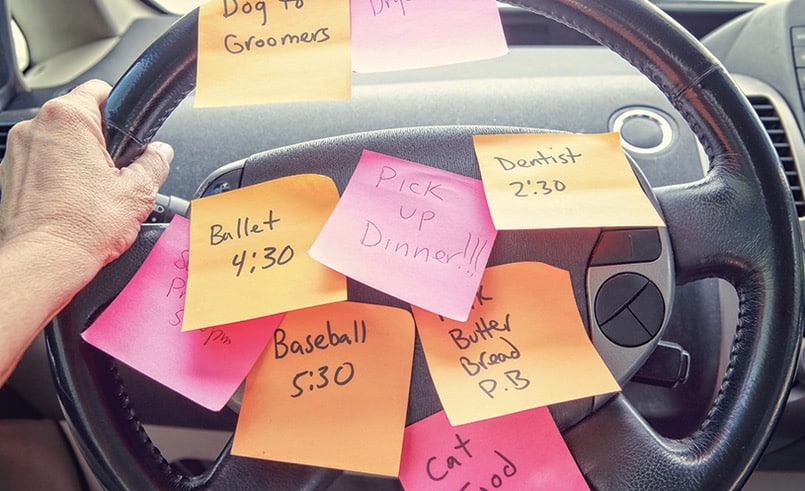 Dog to
Groomers
Dentist
2:30
Pick
up
Dinner!!!
Ballet
4:30
pm
Baseball
5:30
Butter
Bread
P.B
Cat